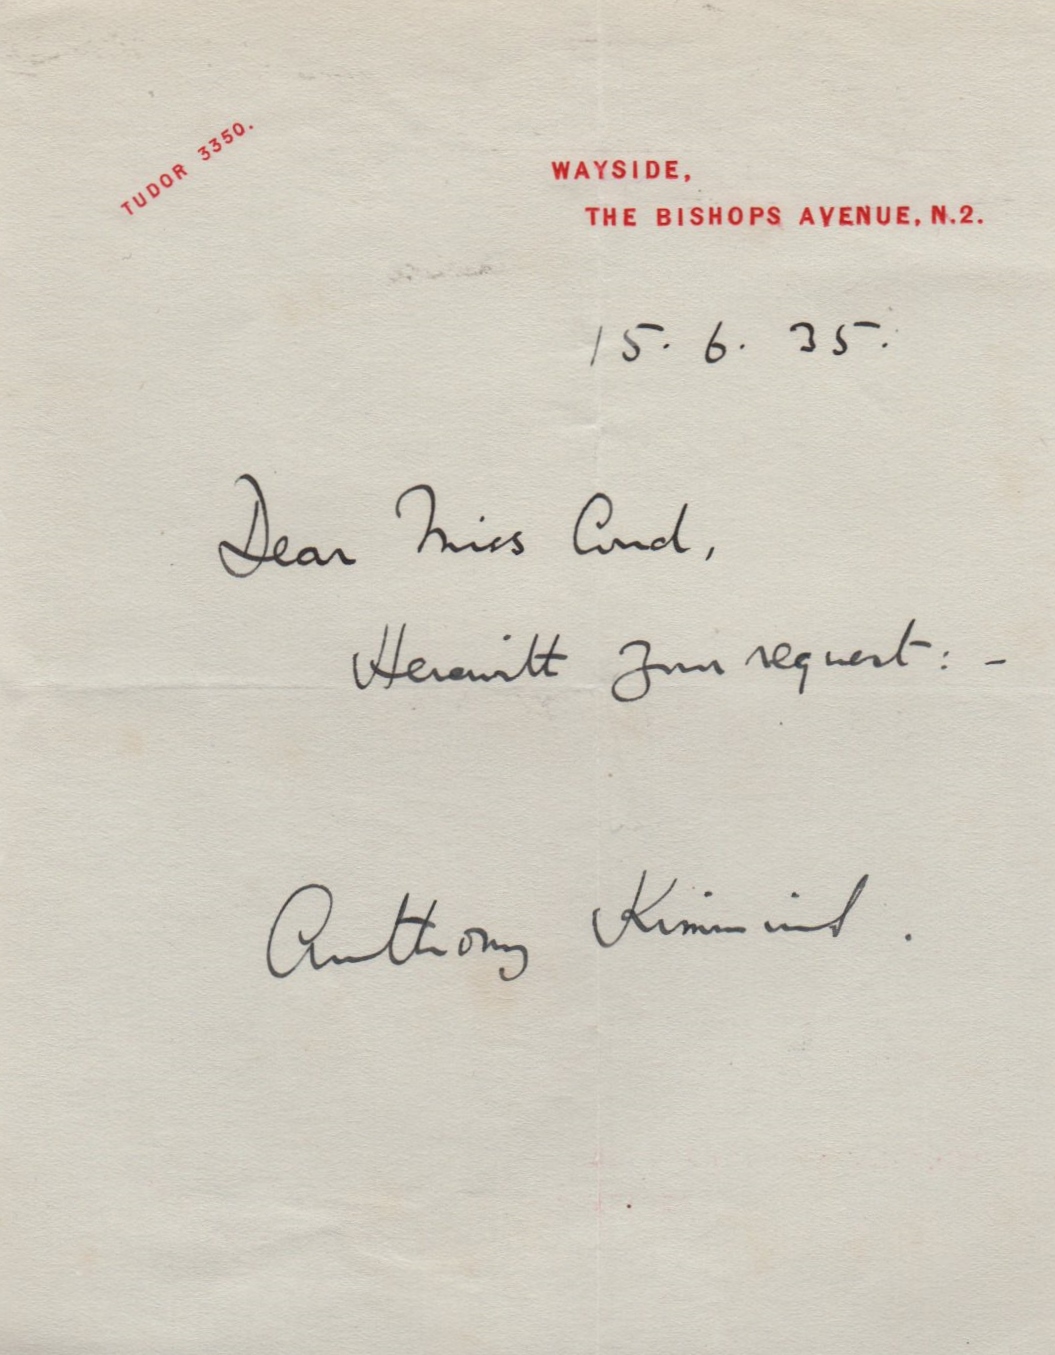 TUDOR 3350.
WAYSIDE,
THE BISHOPS AVENUE, N.2.
15. 6. 35.
Dear Miss
Herewith your request: -
Anthony Kimmins.